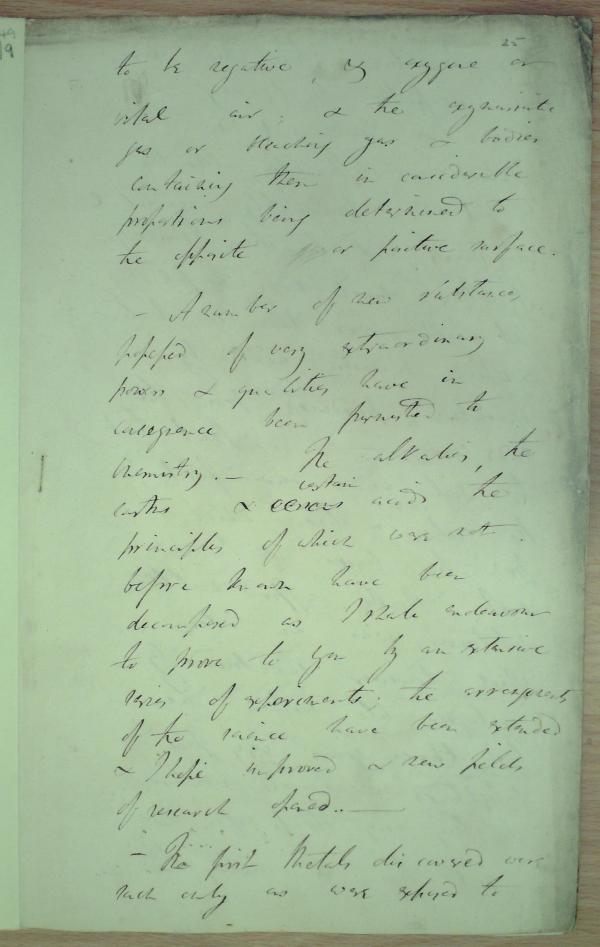 25
to be negative, & oxygene or
vital air; & the oxymuriatic
gas or bleaching gas & bodies
containing them in considerable
proportions being determined to
the opposite or positive surface.
- A number of new substances,
possessed of very extraordinary
powers & qualities have in
consequence been furnished to
chemistry. - The alkalies, the
certain
earths & acids the
principles of which were not
before known have been
decomposed as I shall endeavour
to prove to you by an extensive
series of experiments; the arrangements
of the science have been extended
& I hope improved & new fields
of research opened. -
- The first Metals discovered were
such only as were exposed to